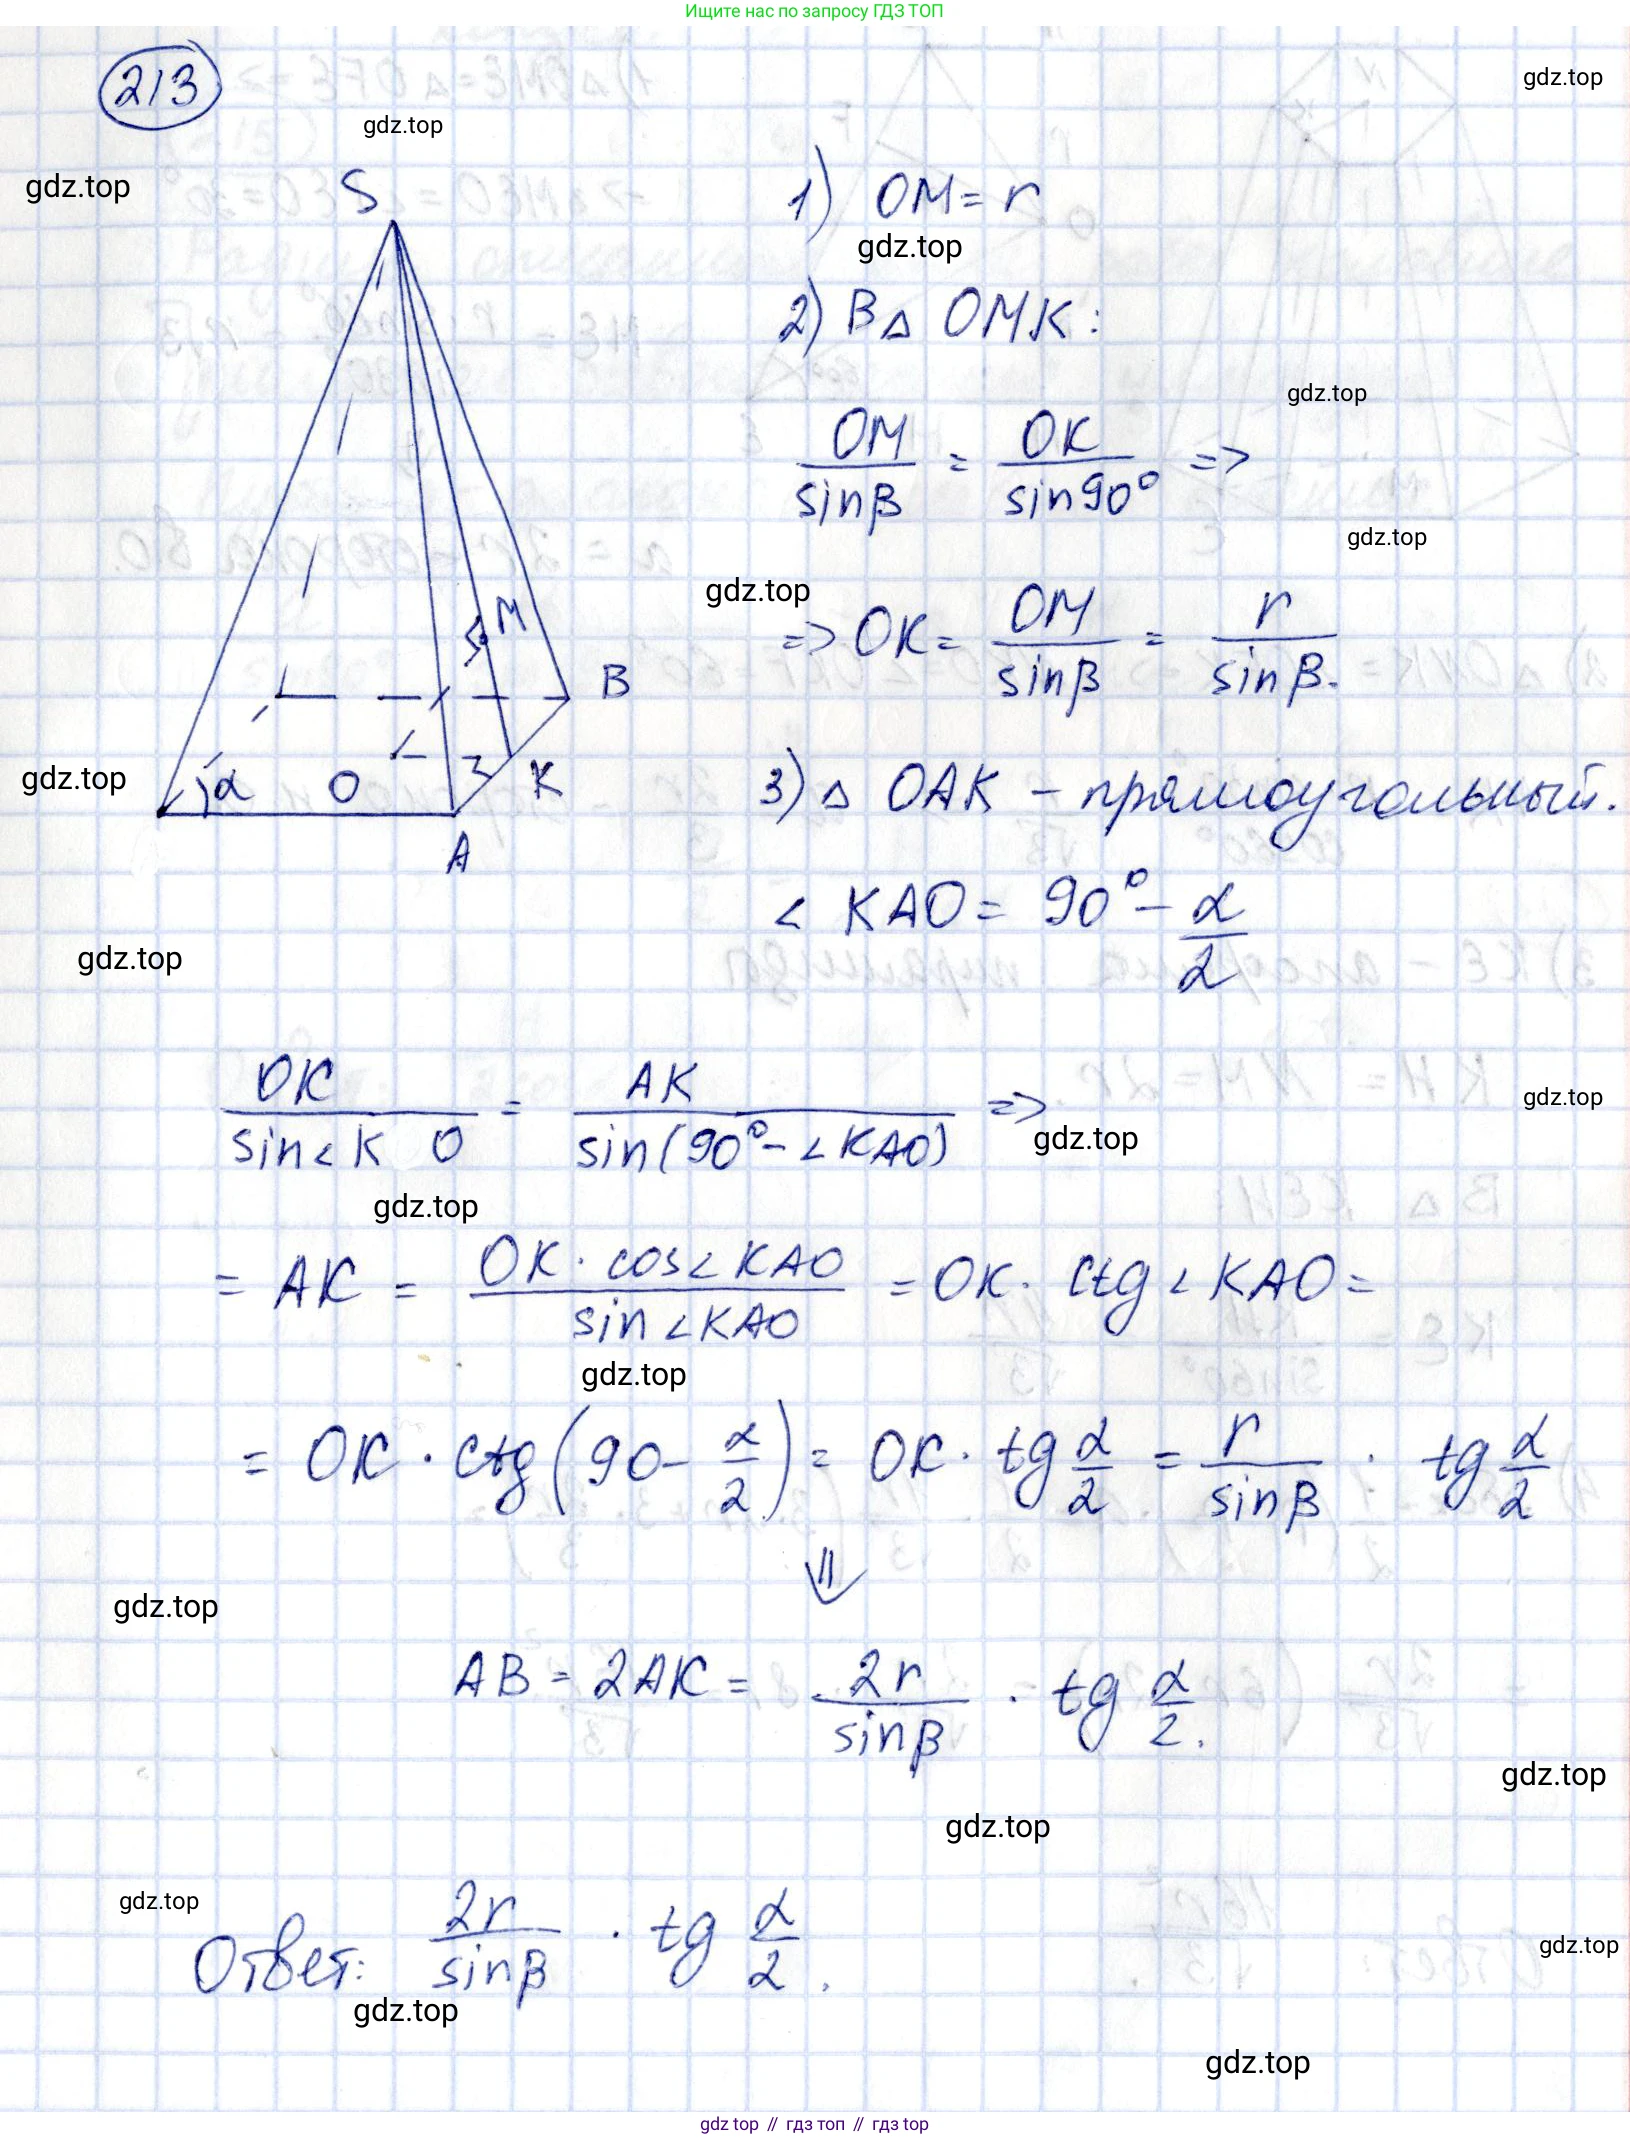 Ищите нас по запросу ГДЗ ТОП
213
gdz.top
gdz.top
gdz.top
S
1) OM = r
gdz.top
2) В △ OMK:
gdz.top
OM/sinβ = OK/sin90° =>
gdz.top
gdz.top
=> OK = OM/sinβ = r/sinβ.
M
B
gdz.top
α O K
A
3) △ OAK – прямоугольный.
∠ KAO = 90° – α/2
gdz.top
OK/sin∠K O = AK/sin(90° – ∠KAO) =>
gdz.top
gdz.top
gdz.top
= AK = OK · cos∠KAO/sin∠KAO = OK · ctg∠KAO =
gdz.top
= OK · ctg(90 – α/2) = OK · tg α/2 = r/sinβ · tg α/2
⇓
gdz.top
AB = 2AK = 2r/sinβ · tg α/2.
gdz.top
gdz.top
gdz.top
Ответ: 2r/sinβ · tg α/2.
gdz.top
gdz.top
gdz.top
gdz top // гдз топ // гдз top